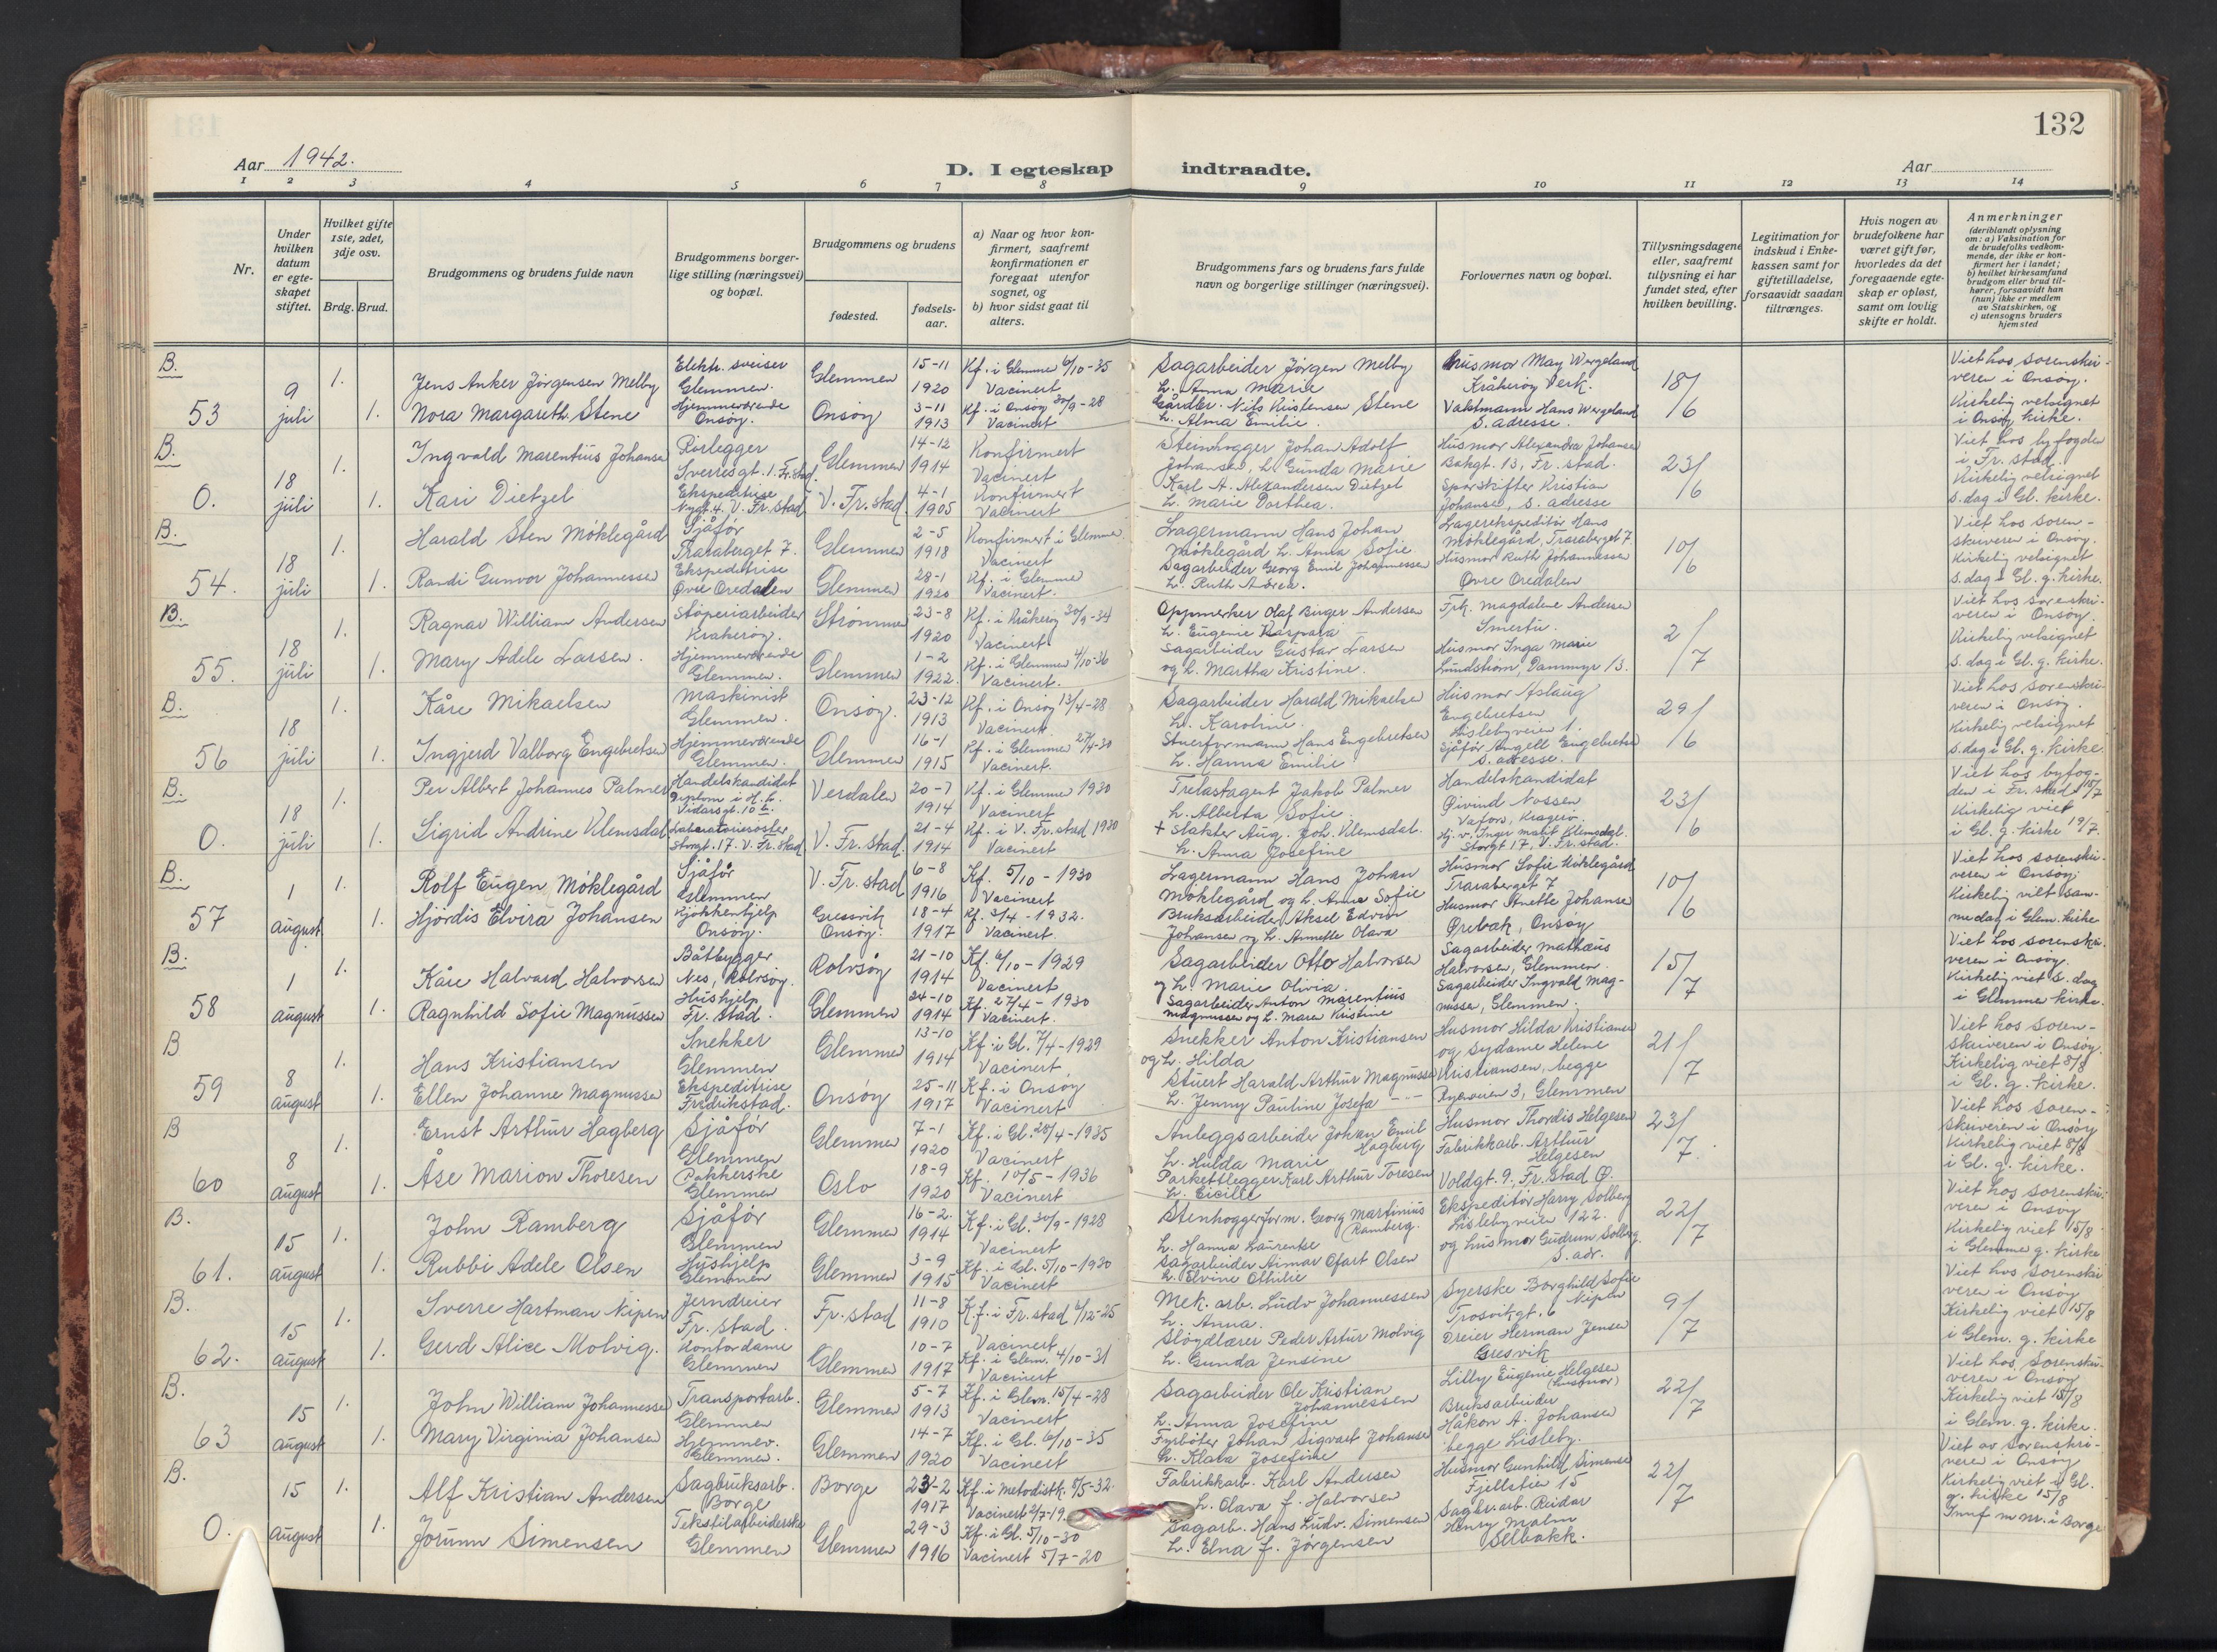 132
Aar 1942.
D. I egteskap indtraadte.
Aar
1 2 3 4 5 6 7 8 9 10 11 12 13 14
Nr.
Under hvilken datum er egteskapet stiftet.
Hvilket gifte 1ste, 2det, 3dje osv.
Brdg. Brud.
Brudgommens og brudens fulde navn
Brudgommens borgerlige stilling (næringsvei) og bopæl.
Brudgommens og brudens
fødested.
fødselsaar.
a) Naar og hvor konfirmert, saafremt konfirmationen er foregaat utenfor sognet, og
b) hvor sidst gaat til alters.
Brudgommens fars og brudens fars fulde navn og borgerlige stillinger (næringsvei).
Forlovernes navn og bopæl.
Tillysningsdagene eller, saafremt tillysning ei har fundet sted, efter hvilken bevilling.
Legitimation for indskud i Enkekassen samt for giftetilladelse, forsaavidt saadan tiltrænges.
Hvis nogen av brudefolkene har været gift før, hvorledes da det foregaaende egteskap er opløst, samt om lovlig skifte er holdt.
Anmerkninger (deriblandt oplysning om: a) Vaksination for de brudefolks vedkommende, der ikke er konfirmert her i landet; b) hvilket kirkesamfund brudgom eller brud tilhører, forsaavidt han (hun) ikke er medlem av Statskirken, og c) utensogns bruders hjemsted
B. 53 9 juli
1. Jens Anker Jörgensen Melby Elektr. sveiser Glemmen. Glemmen 15-11 1920 Kf. i Glemme 6/10-35 Vacinert
Sagarbeider Jörgen Melby h. Anna Marie Husmor May Wergeland Kråkeröy Verk. 18/6
1. Nora Margareth Stene Hjemmeværende Onsøy. Onsøy 3-11 1913 Kf. i Onsøy 30/9-28 Vacinert
Gårdbr. Nils Kristensen Stene h. Alma Emilie. Vaktmann Hans Wergeland s. adresse.
Viet hos sorenskriveren i Onsøy. Kirkelig velsignet i Onsøy kirke.
B. O. 18 juli
1. Ingvald Marentius Johansen Rørlegger Sverresgt. 1. Fr.stad. Glemmen 14-12 1914 Konfirmert Vacinert
Steinhogger Johan Adolf Johansen, h. Gunda Marie Husmor Alexandra Johansen Bakgt. 13, Fr. stad. 23/6
1. Kari Dietzel Ekspeditrise Nygt. 4. V. Fr. stad V. Fr. stad. 4-1 1905 Konfirmert Vacinert
Karl A. Alexandersen Dietzel h. Marie Dorthea. Sporskifter Kristian Johansen, s. adresse
Viet hos byfogden i Fr. stad. Kirkelig velsignet s. dag i Gl. kirke.
B. 54. 18 juli
1. Harald Sten Möklegård Sjåför Traraberget 7. Glemmen 2-5 1918 Konfirmert i Glemme. Vacinert
Lagermann Hans Johan Möklegård h. Anna Sofie Lagerekspeditör Hans Möklegård, Traraberget 7 10/6
1. Randi Gunvor Johannessen Ekspeditrise Øvre Oredalen Glemmen 28-1 1920 Kf. i Glemme Vacinert.
Sagarbeider Georg Emil Johannessen h. Ruth Andrea. Husmor Ruth Johannessen Övre Oredalen
Viet hos sorenskriveren i Onsøy. Kirkelig velsignet s. dag i Gl. g. kirke.
B. 55. 18 juli
1. Ragnar William Andersen Støperiarbeider Krakerøy. Strömmen 23-8 1920 Kf. i Kråkeröy 30/9-34 Vacinert
Oppmerker Olaf Birger Andersen h. Eugenie Kaspara Frk. Magdalene Andersen Smertu. 2/7
1. Mary Adele Larsen. Hjemmeværende Glemmen. Glemmen 1-2 1922. Kf. i Glemmen 4/10-36 Vacinert.
Sagarbeider Gustav Larsen og h. Martha Kristine. Husmor Inga Marie Lundström, Dammyr 13.
Viet hos sorenskriveren i Onsøy. Kirkelig velsignet s. dag i Gl. g. kirke.
B. 56 18 juli
1. Kåre Mikaelsen Maskinist Glemmen. Onsøy. 23-12 1913 Kf. i Onsøy 13/4-28 Vacinert.
Sagarbeider Harald Mikaelsen h. Karoline. Husmor Aslaug Engebretsen Hislebyveien 1. 29/6
1. Ingjerd Valborg Engebretsen Hjemmeværende Glemmen. Glemmen 16-1 1915 Kf. i Glemmen 27/4-30 Vacinert.
Stuerformann Hans Engebretsen h. Hanna Emilie Sjåför Angell Engebretsen s. adresse.
Viet hos sorenskriveren i Onsøy. Kirkelig velsignet s. dag i Gl. g. kirke
B. O. 18 juli
1. Per Albert Johannes Palmer Handelskandidat Vidarsgt. 10 b. Verdalen 20-7 1914 Kf. i Glemmen 1930 Vacinert
Trelastagent Jakob Palmer h. Alberta Sofie Handelskandidat Øivind Nossen Vafors, Kragerö. 23/6
1. Sigrid Andrine Klemsdal Laboratoriesöster Storgt. 17. V. Fr. stad V. Fr. stad. 21-4 1914 Kf. i V. Fr. stad 1930 Vacinert
+ Slakter Aug. Joh. Klemsdal. h. Anna Josefine Hj. v. Inger Marit Klemsdal. Storgt 17, V. Fr. stad.
Viet hos byfogden i Fr. stad 18/7 Kirkelig viet i Gl. g. kirke 19/7.
B. 57 1 august
1. Rolf Eugen Möklegård Sjåför Glemmen V. Fr. stad 6-8 1916 Kf. 5/10-1930 Vacinert
Lagermann Hans Johan Möklegård og h. Anna Sofie Husmor Sofie Möklegård Traraberget 7 10/6
1. Hjördis Elvira Johansen Kjøkkenhjelp Onsøy. Gressvik Onsøy. 18-4 1917 Kf. 3/4-1932. Vacinert.
Bruksarbeider Aksel Edvin Johansen og h. Annette Olava Husmor Anette Johansen Ørebæk, Onsøy
Viet hos sorenskriveren i Onsøy. Kirkelig viet samme dag i Glem. kirke
B. 58 1 august
1. Kåre Halvard Halvorsen Båtbygger Nes, Rolvsøy. Rolvsøy 21-10 1914 Kf. 6/10-1929 Vacinert
Sagarbeider Otto Halvorsen og h. Marie Olivia. Sagarbeider Mathæus Halvorsen, Glemmen. 15/7
1. Ragnhild Sofie Magnussen Hushjelp Fr. stad. Glemmen 24-10 1914 Kf. 27/4-1930 Vacinert.
Sagarbeider Anton Marentius Magnussen og h. Maren Kristine Sagarbeider Ingvald Magnussen, Glemmen.
Viet hos sorenskriveren i Onsøy. Kirkelig viet s. dag i Glemme kirke.
B 59 8 august
1. Hans Kristiansen Snekker Glemmen Glemmen 13-10 1914 Kf. i Gl. 7/4-1929 Vacinert
Snekker Anton Kristiansen og h. Hilda Husmor Hilda Kristiansen og Sydame Helene Kristiansen, begge 21/7
1. Ellen Johanne Magnussen Ekspeditrise Fredrikstad. Onsøy 25-11 1917 Kf. i Onsøy Vacinert
Stuert Harald Arthur Magnussen h. Jenny Pauline Josefa Ryeveien 3, Glemmen
Viet hos sorenskriveren i Onsøy. Kirkelig viet 8/8 i Gl. g. kirke.
B 60 8 august
1. Ernst Arthur Hagberg Sjåför Glemmen Glemmen 7-1 1920 Kf. i Gl. 28/4-1935 Vacinert
Anleggsarbeider Johan Emil Hagberg h. Hulda Marie Husmor Thordis Helgesen 23/7.
1. Åse Marion Thoresen Pakkerske Glemmen Oslo 18-9 1920 Kf. 10/5-1936 Vacinert
Parkettlegger Karl Arthur Toresen h. Cicilie Fabrikkarb. Arthur Helgesen Voldgt. 9, Fr. stad Ø.
Viet hos sorenskriveren i Onsøy Kirkelig viet 8/8 i Gl. g. kirke.
B. 61. 15 august
1. John Ramberg Sjåför Glemmen Glemmen 16-2. 1914 Kf. i Gl. 30/9-1928 Vacinert
Stenhoggerform. Georg Martinius Ramberg. h. Hanna Laurentse Ekspeditör Harry Solberg Lislebyveien 122. 22/7
1. Rubbi Adele Olsen Hushjelp Glemmen Glemmen 3-9 1915 Kf. i Gl. 5/10-1930 Vacinert
Sagarbeider Ainmar Ofart Olsen h. Elvine Othilie og husmor Gudrun Solberg. s. adr.
Viet hos sorenskriveren i Onsøy Kirkelig viet 15/8 i Glemme g. kirke
B. 62. 15 august
1. Sverre Hartman Nipen Jerndreier Fr. stad. Fr. stad 11-8 1910 K.f. i Fr. stad 6/12-25 Vacinert
Mek. arb. Ludv Johannessen h. Anna. Syerske Borghild Sofie Nipen Trosvikgt. 6 9/7
1. Gerd Alice Molvig. Kontordame Glemmen Glemmen 10-7 1917 Kf. i Glem. 4/10-31 Vacinert
Sløydlærer Peder Artur Molvig h. Gunda Jensine Dreier Herman Jensen Gresvik
Viet hos sorenskriveren i Onsøy Kirkelig viet 15/8 i Glem. g. kirke
B. 63 15 august
1. John William Johannessen Transportarb. Glemmen Glemmen 5-7 1913 Kf. i Glem. 15/4-28 Vacinert
Sagarbeider Ole Kristian Johannessen h. Anna Josefine Lilly Eugenie Helgesen (husmor) 22/7
1. Mary Virginia Johansen Hjemmev. Glemmen. Glemmen 14-7 1920 Kf. i Gl. 6/10-35 Vacinert
Fyrböter Johan Sigvart Johansen h. Klara Josefine Bruksarbeider Håkon A. Johansen begge Lisleby.
Viet hos Sorenskriveren i Onsøy Kirkelig viet 15/8 i Glem. g. kirke.
B. O. 15 august
1. Alf Kristian Andersen Sagbruksarb. Borge Borge 23-2 1917 Kf. i Metodistk. 8/5-32. Vacinert 2/7-19.
Fabrikkarb. Karl Andersen h. Olava f. Halvorsen Husmor Gunhild Simensen Fjellstien 15 22/7
1. Jorunn Simensen Tekstilarbeiderske Glemmen Glemmen 29-3 1916 Kf. i Gl. 5/10-30 Vacinert 5/7-20
Sagarb. Hans Ludv. Simensen h. Elna f. Jörgensen Sagbr.arb. Reidar Henry Malm Selbakk.
Viet av sorenskriveren i Onsøy Kirkelig viet i Gl. g. kirke 15/8 Innf m nr. i Borge